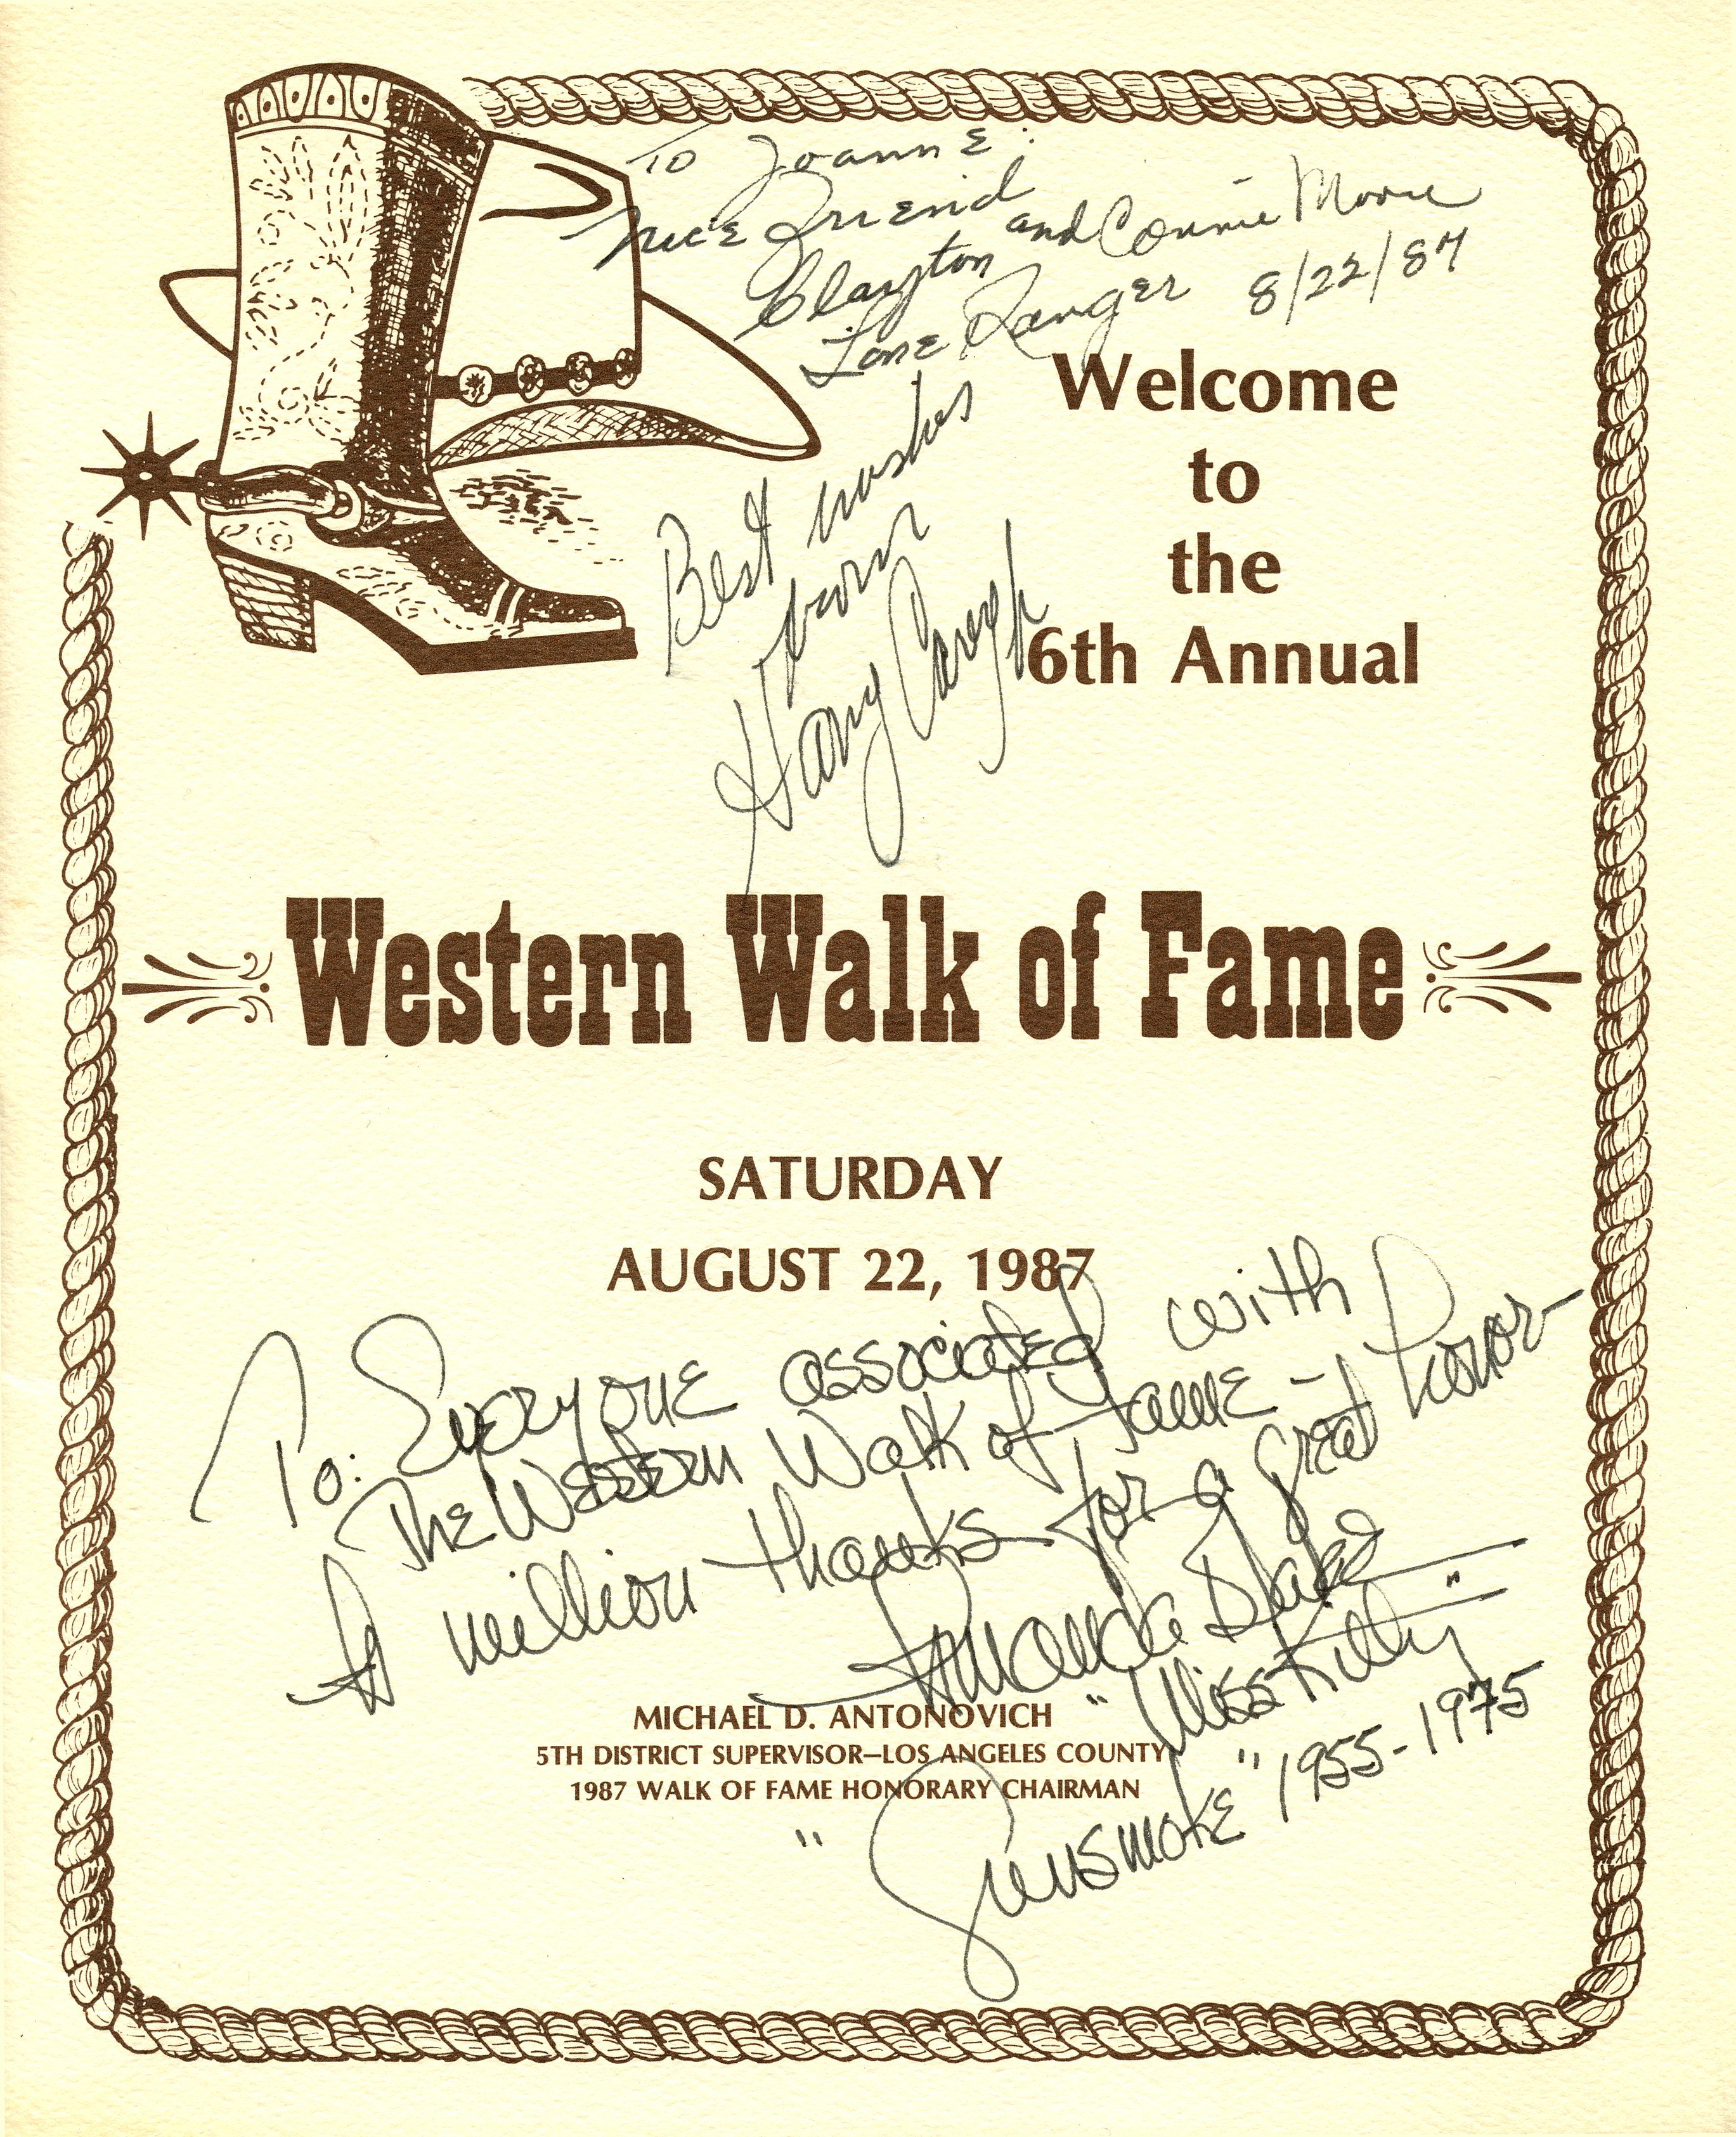 To Joanne:
Nice Friend
Clayton and Connie Moore
Lone Ranger 8/22/87
Best wishes
from
Harry Carey Jr
Welcome
to
the
6th Annual
Western Walk of Fame
SATURDAY
AUGUST 22, 1987
To: Everyone associated with
The Western Walk of Fame -
A million thanks for a great honor -
Amanda Blake
"Miss Kitty"
"Gunsmoke" 1955-1975
MICHAEL D. ANTONOVICH
5TH DISTRICT SUPERVISOR–LOS ANGELES COUNTY
1987 WALK OF FAME HONORARY CHAIRMAN